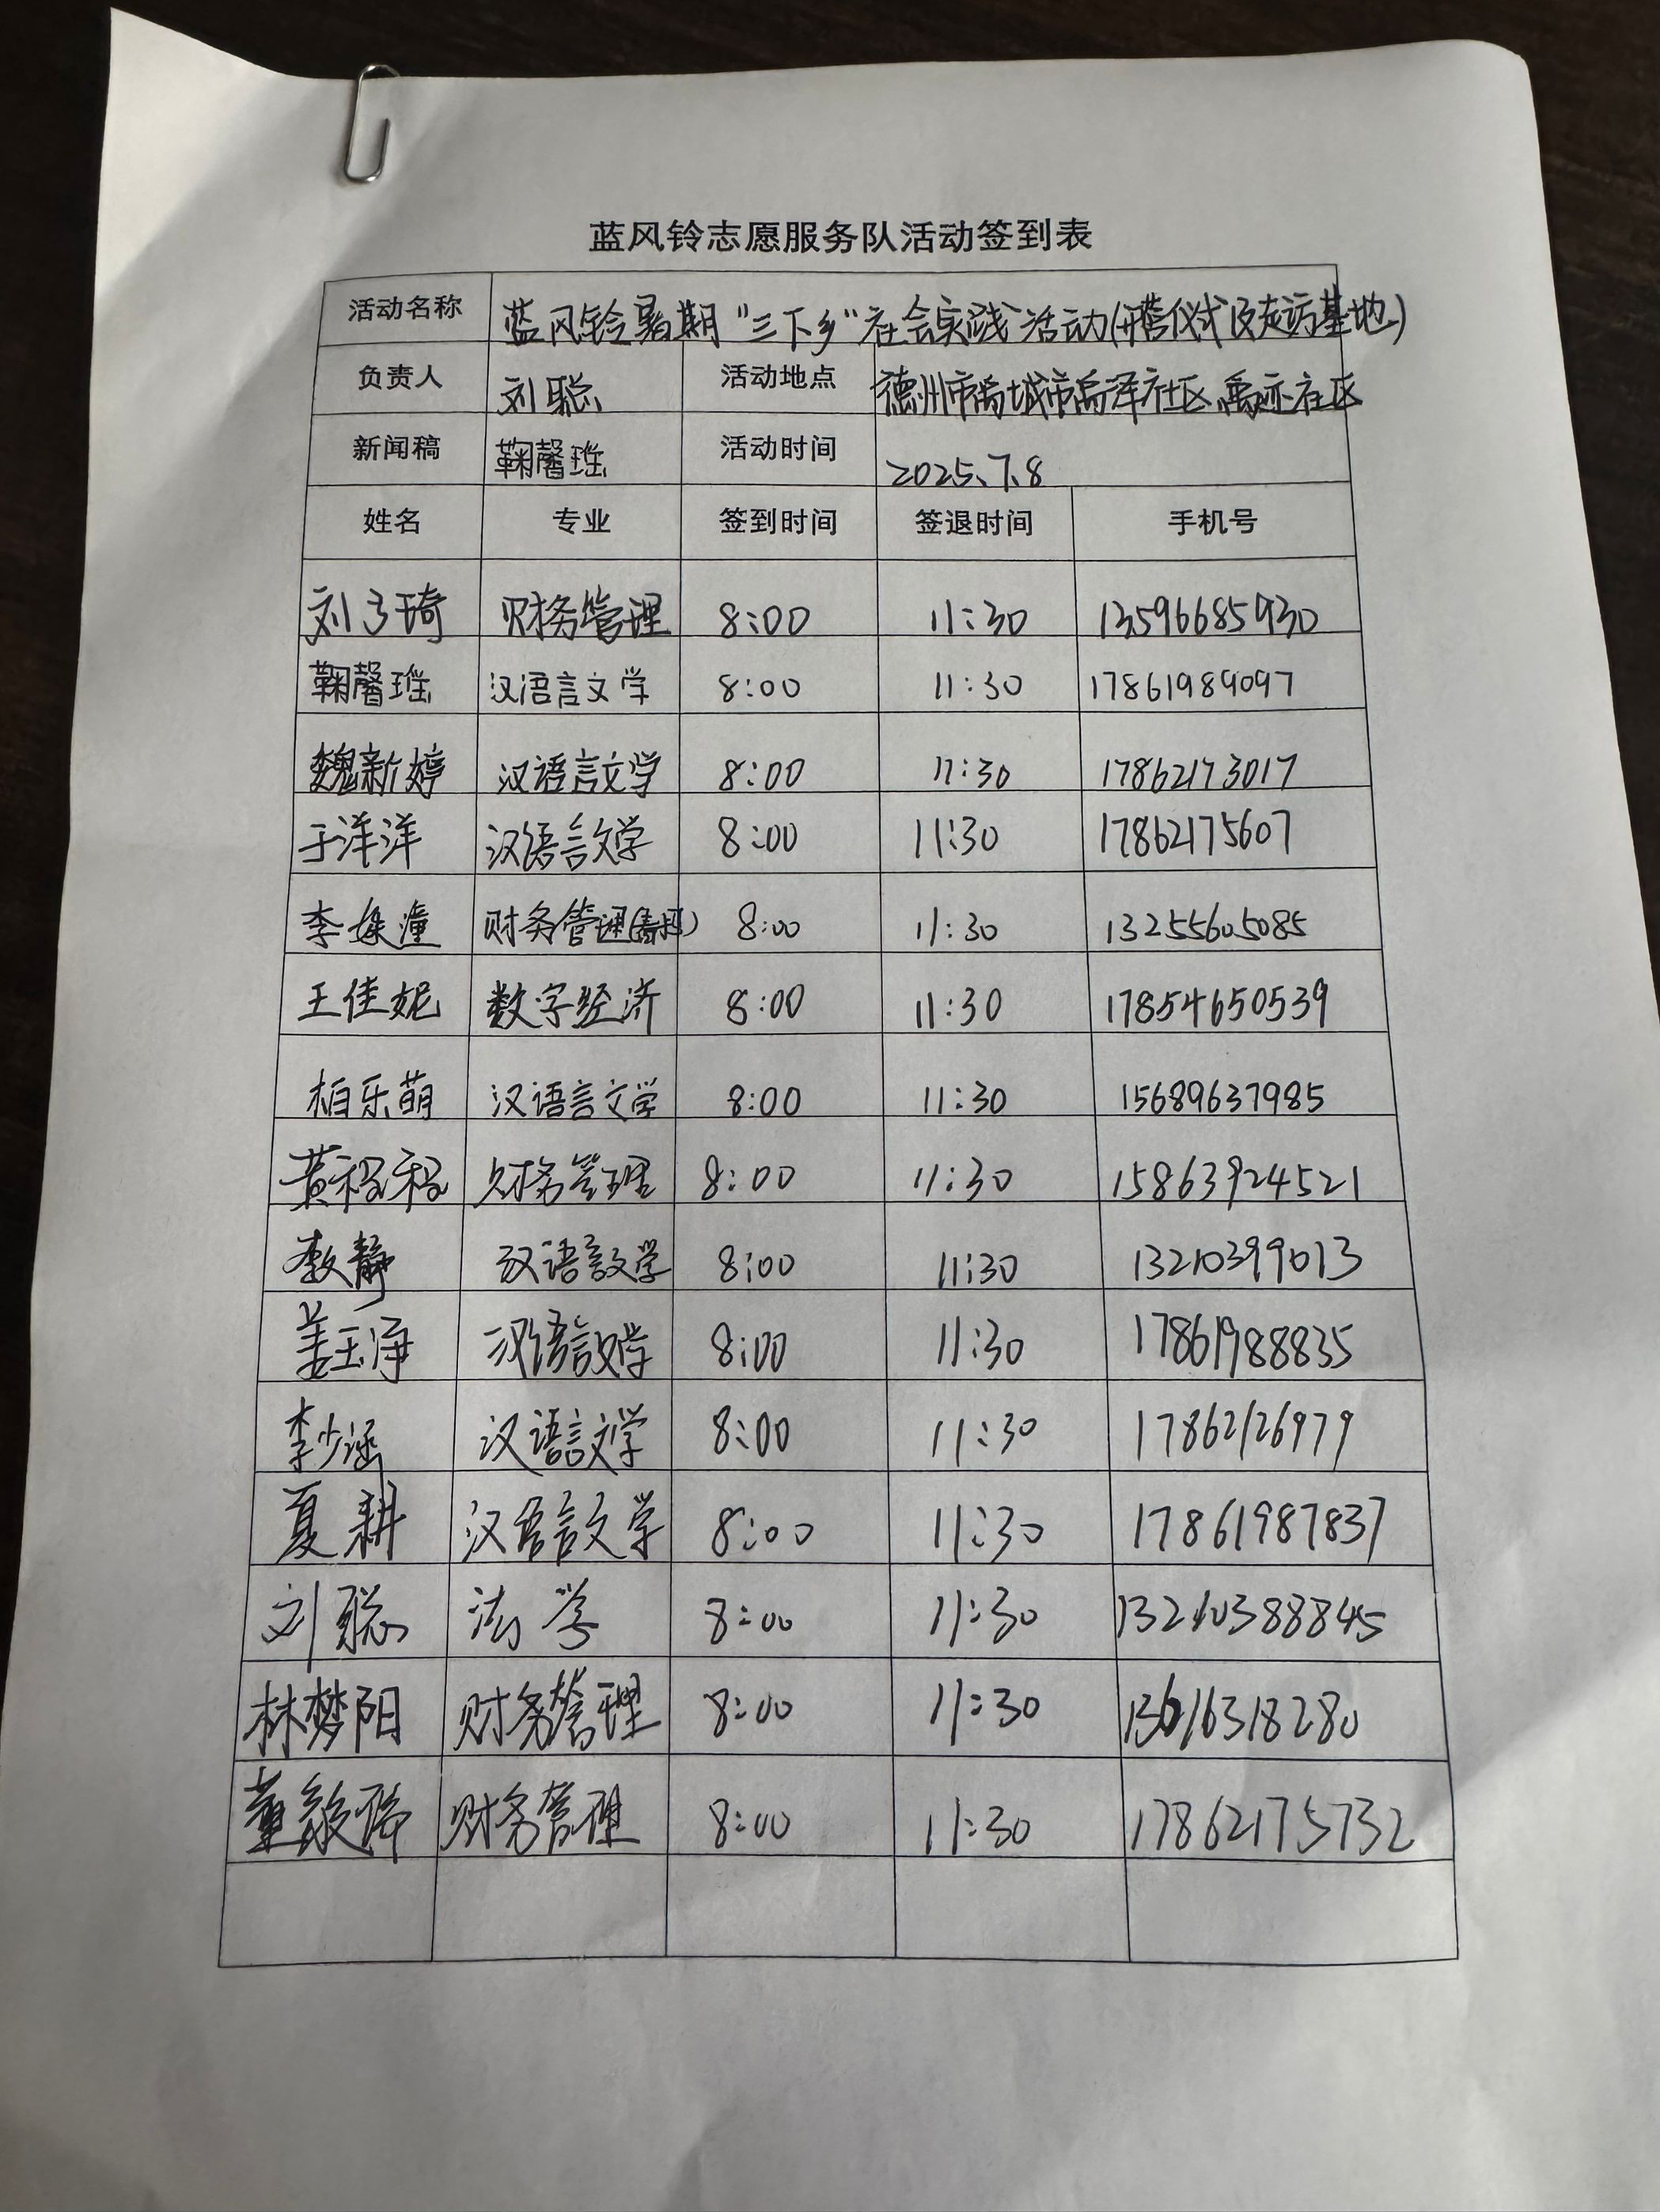 蓝风铃志愿服务队活动签到表
活动名称 蓝风铃暑期“三下乡”社会实践活动(开营仪式及走访基地)
负责人 刘聪 活动地点 德州市禹城市禹泽社区、禹迹社区
新闻稿 鞠馨瑶 活动时间 2025.7.8
姓名 专业 签到时间 签退时间 手机号
刘子琦 财务管理 8:00 11:30 13596685930
鞠馨瑶 汉语言文学 8:00 11:30 17861989097
魏新婷 汉语言文学 8:00 11:30 17862173017
于洋洋 汉语言文学 8:00 11:30 17862175607
李姝潼 财务管理 8:00 11:30 13255605085
王佳妮 数字经济 8:00 11:30 17854650539
柏乐萌 汉语言文学 8:00 11:30 15689637985
黄程程 财务管理 8:00 11:30 15863924521
李静 汉语言文学 8:00 11:30 13210399013
姜玉海 汉语言文学 8:00 11:30 17861988835
李少涵 汉语言文学 8:00 11:30 17862126979
夏耕 汉语言文学 8:00 11:30 17861987837
刘聪 法学 8:00 11:30 13210388845
林梦阳 财务管理 8:00 11:30 13616318280
董 财务管理 8:00 11:30 17862175732